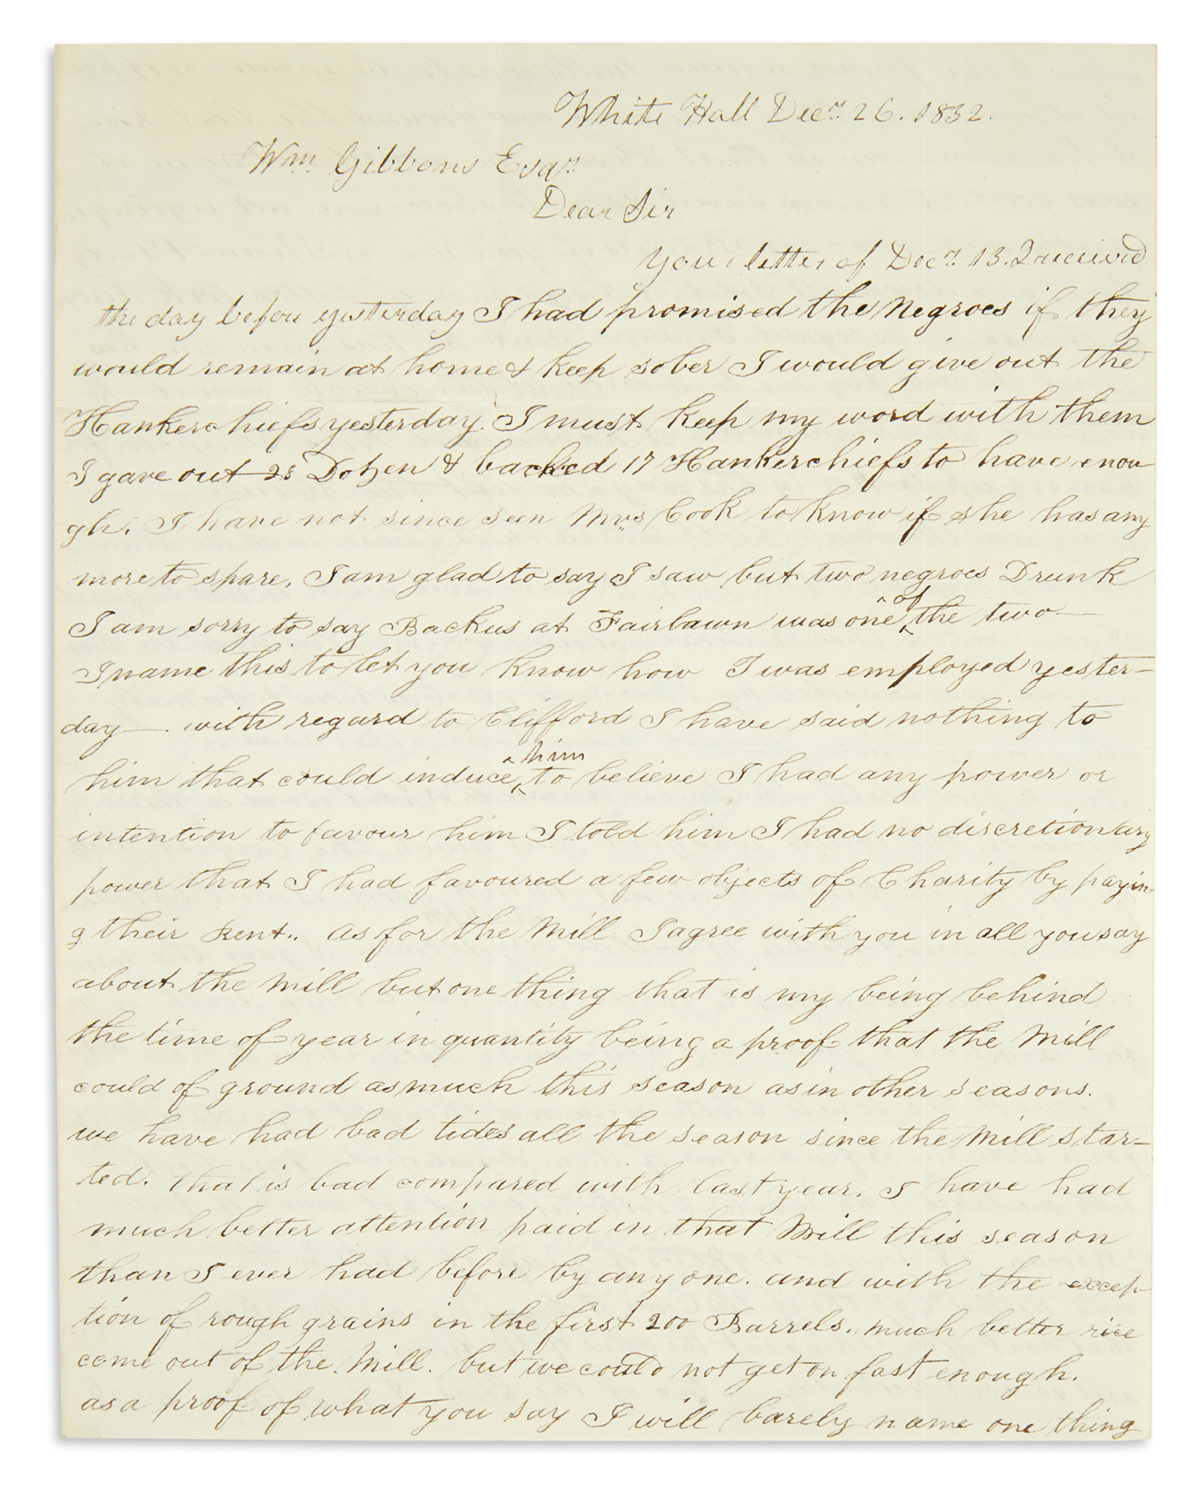 White Hall Decr 26. 1832.
Wm Gibbons Esqr
Dear Sir
Your letter of Decr 13. I received
the day before yesterday I had promised the Negroes if they
would remain at home & keep sober I would give out the
Hankerchiefs yesterday. I must keep my word with them
I gave out 28 Dozen & backed 17 Hankerchiefs to have enou
gh. I have not since seen Mrs Cook to know if she has any
more to spare. I am glad to say I saw but two negroes Drunk
I am sorry to say Backus at Fairlawn was one of the two—
I name this to let you know how I was employed yester-
day —. with regard to Clifford I have said nothing to
him that could induce him to believe I had any power or
intention to favour him I told him I had no discretionary
power that I had favoured a few objects of Charity by payin
g their Rent. As for the Mill I agree with you in all you say
about the Mill but one thing that is my being behind
the time of year in quantity being a proof that the Mill
could of ground as much this season as in other seasons.
we have had bad tides all the season since the Mill star-
ted. that is bad compared with last year. I have had
much better attention paid in that Mill this season
than I ever had before by any one. and with the excep-
tion of rough grains in the first 200 Barrels. much better rice
come out of the Mill. but we could not get on fast enough.
as a proof of what you say I will barely name one thing